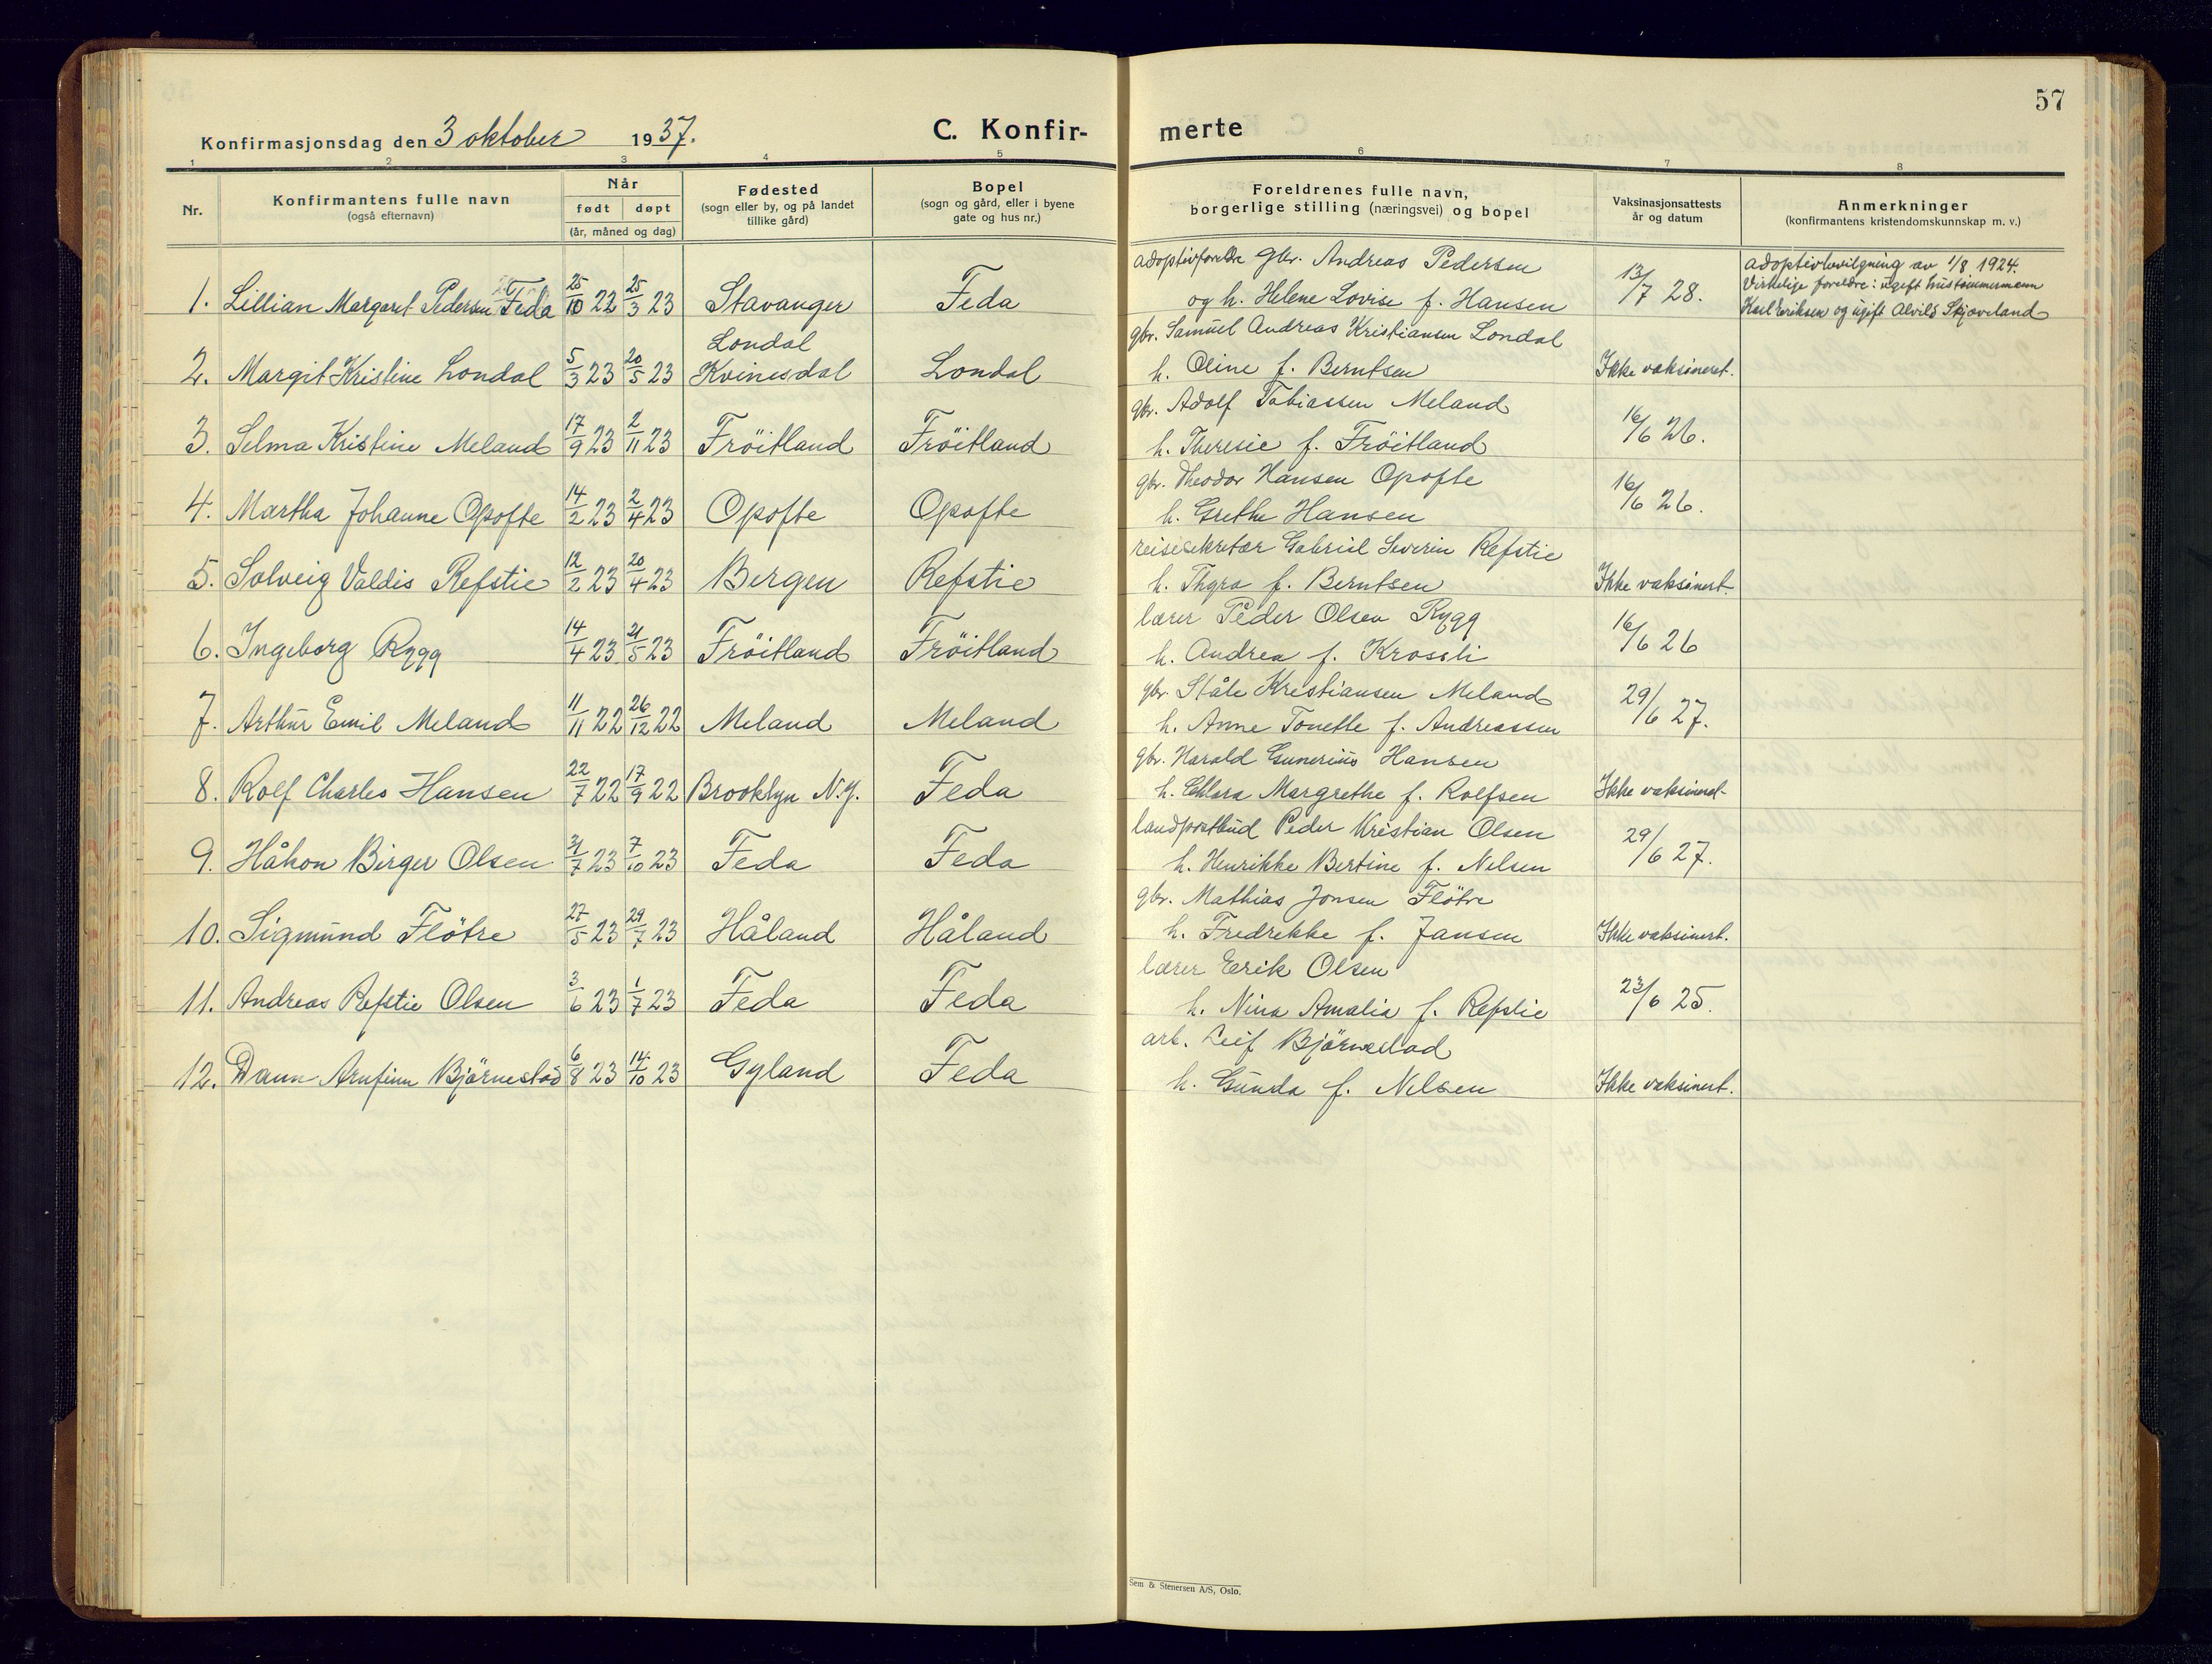 57
Konfirmasjonsdag den 3 oktober 1937.
C. Konfir-
merte
1 2 3 4 5 6 7 8
Nr.
Konfirmantens fulle navn
(også efternavn)
Når
født døpt
(år, måned og dag)
Fødested
(sogn eller by, og på landet
tillike gård)
Bopel
(sogn og gård, eller i byene
gate og hus nr.)
Foreldrenes fulle navn,
borgerlige stilling (næringsvei) og bopel
Vaksinasjonsattests
år og datum
Anmerkninger
(konfirmantens kristendomskunnskap m. v.)
1. Lillian Margaret Pedersen Feda 25/10 22 25/3 23 Stavanger Feda
adoptivforeldre gbr. Andreas Pedersen
og h. Helene Lovise f. Hansen
13/7 28.
Adoptivbevilgning av 1/8 1924.
Virkelige foreldre: ugift hustømmermann
Karl Eriksen og ugift Alvild Skjæveland
2. Margit Kristine Londal 5/3 23 20/5 23
Londal
Kvinesdal Londal
gbr. Samuel Andreas Kristiansen Londal
h. Oline f. Berntsen
Ikke vaksineret.
3. Selma Kristine Meland 17/9 23 2/11 23 Fröitland Fröitland
gbr. Adolf Tobiassen Meland
h. Theresie f. Fröitland
16/6 26.
4. Martha Johanne Opofte 14/2 23 2/4 23 Opofte Opofte
gbr. Theodor Hansen Opofte
h. Grethe Hansen
16/6 26.
5. Solveig Valdis Refstie 12/2 23 20/4 23 Bergen Refstie
reisesekretær Gabriel Severin Refstie
h. Thyra f. Berntsen
Ikke vaksinert.
6. Ingeborg Rygg 14/4 23 21/5 23 Fröitland Fröitland
lærer Peder Olsen Rygg
h. Andrea f. Krossli
16/6 26
7. Arthur Emil Meland 11/11 22 26/12 22 Meland Meland
gbr. Ståle Kristiansen Meland
h. Anne Tonette f. Andreassen
29/6 27.
8. Rolf Charles Hansen 22/7 22 17/9 22 Brooklyn N.y. Feda
gbr. Harald Gunerius Hansen
h. Chlara Margrethe f. Rolfsen
Ikke vaksinert
9. Håkon Birger Olsen 31/7 23 7/10 23 Feda Feda
landpostbud Peder Kristian Olsen
h. Henrikke Bertine f. Nelsen
29/6 27.
10. Sigmund Flötre 27/5 23 29/7 23 Håland Håland
gbr. Mathias Jonsen Flötre
h. Fredrekke f. Jansen
Ikke vaksinert.
11. Andreas Refstie Olsen 3/6 23 1/7 23 Feda Feda
lærer Erik Olsen
h. Nina Amalia f. Refstie
23/6 25.
12. Dann Arnfinn Björnestad 6/8 23 14/10 23 Gyland Feda
arb. Leif Björnestad
h. Gunda f. Nelsen
Ikke vaksinert.
Sem & Stenersen A/S, Oslo.